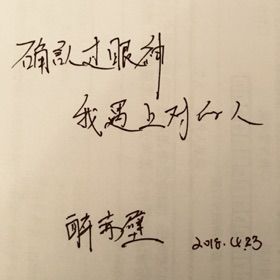 确认过眼神
我遇上对的人
醉赤壁 2018.4.23